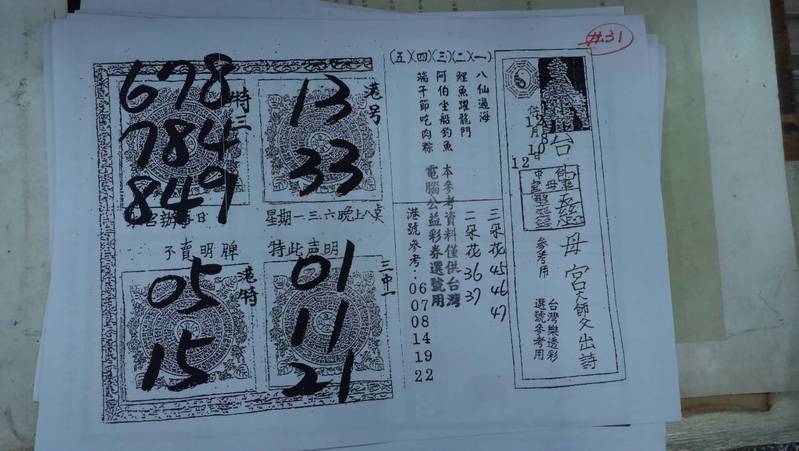 #31
678
784
849
特三
13
33
港号
星期一.三.六晚上八桌
不賣明牌
特此声明
05
15
港特
01
11
21
三中一
(五)(四)(三)(二)(一)
八仙過海
鯉魚躍龍門
阿伯坐船釣魚
端午節吃肉粽
本參考資料僅供台灣
電腦公益彩券選號用
三朵花45 46 47
二朵花36 37
港號參考:06 07 08 14 19 22
12
月
10
台
母宮大師父出詩
參考用
台灣樂透彩
選號參考用